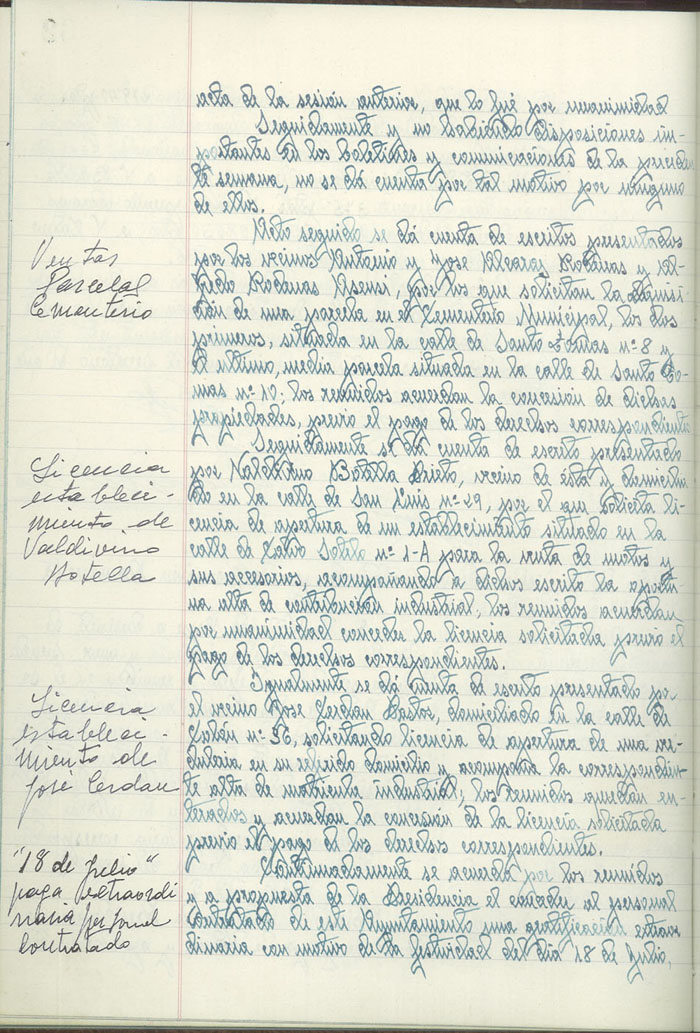 acta de la sesión anterior, que lo fué por unanimidad
Seguidamente y no habiendo disposiciones im-
portantes en los boletines y comunicaciones de la preceden
te semana, no se dá cuenta por tal motivo por ninguno
de ellos.
Ventas
Parcelas
Cementerio
Acto seguido se dá cuenta de escritos presentados
por los vecinos Antonio y Jose Alcaraz Rodenas y Al-
fredo Rodenas Asensi, por los que solicitan la adquisi-
ción de una parcela en el Cementerio Municipal, los dos
primeros, situada en la calle de Santo Tomas nº 8 y
el ultimo, media parcela situada en la calle de Santo To-
mas nº 10; los reunidos acuerdan la concesion de dichas
propiedades, previo el pago de los derechos correspondientes
Licencia
estableci-
miento de
Valdivino
Botella
Seguidamente se dá cuenta de escrito presentado
por Valdivino Botella Prieto, vecino de ésta y domicilia
do en la calle de San Luis nº 29, por el que solicita li-
cencia de apertura de un establecimiento situado en la
calle de Calvo Sotelo nº 1-A para la venta de motos y
sus accesorios, acompañando a dichos escrito la oportu
na alta de contribucion industrial, los reunidos acuerdan
por unanimidad conceder la licencia solicitada previo el
pago de los derechos correspondientes.
Licencia
estableci-
miento de
José Cerdan
Igualmente se dá cuenta de escrito presentado por
el vecino Jose Cerdan Pastor, domiciliado en la calle de
Colón nº 36, solicitando licencia de apertura de una ven-
duteria en su referido domicilio y acompaña la correspondien-
te alta de matricula industrial; los reunidos quedan en-
terados y acuerdan la concesion de la licencia solicitada
previo el pago de los derechos correspondientes.
"18 de Julio"
paga extraordi
naria personal
contratado
Continuadamente se acuerda por los reunidos
y a propuesta de la Presidencia el conceder al personal
contratado de este Ayuntamiento una gratificación extraor
dinaria con motivo de la festividad del dia 18 de Julio,